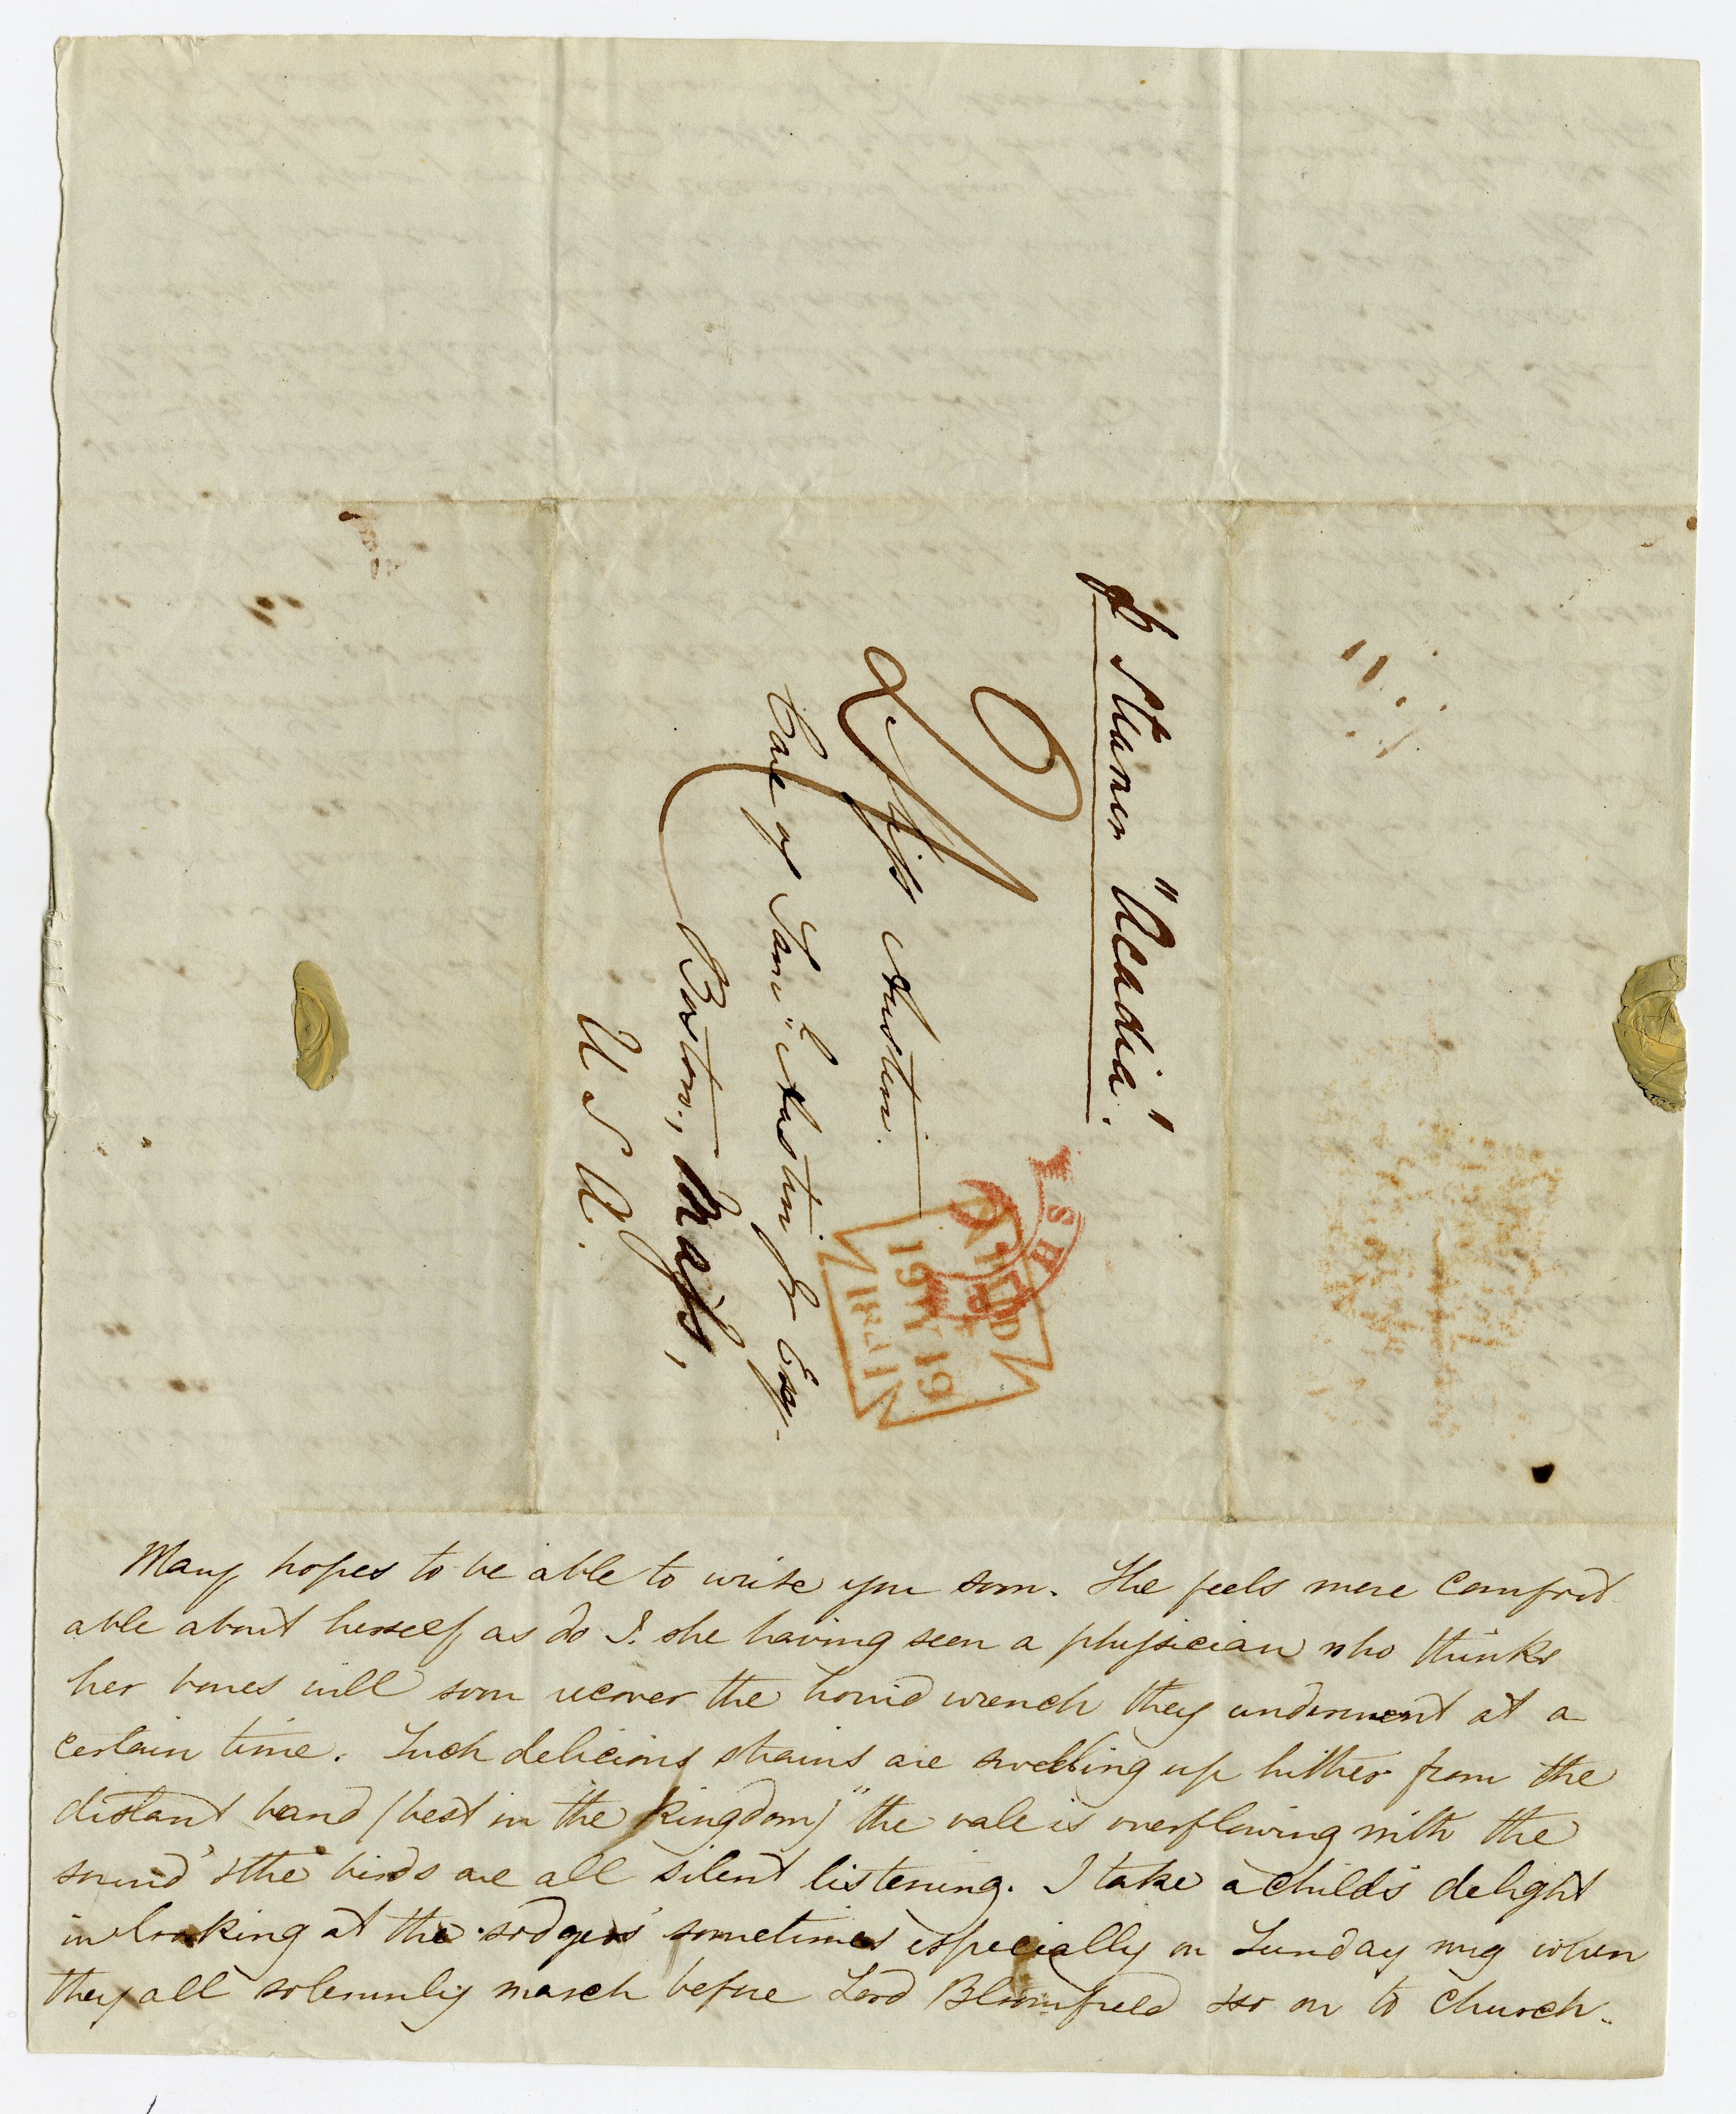 pr Steamer "Acadia".
Miss Austin.
Care of Sam.l Austin Jr Esq.
Boston, Mass,
U S A.
PAID
19 MY 19
Mary hopes to be able to write you soon. She feels more comfort
able about herself, as do I. she having seen a physician who thinks
her bones will soon recover the horrid wrench they underwent at a
certain time. Such delicious strains are swelling up hither from the
distant band (best in the kingdom) "the vale is overflowing with the
sound" & the birds are all silent listening. I take a child's delight
in looking at the 'sodgers' sometimes especially on Sunday mg when
they all solemnly march before Lord Bloomfield & so on to church.